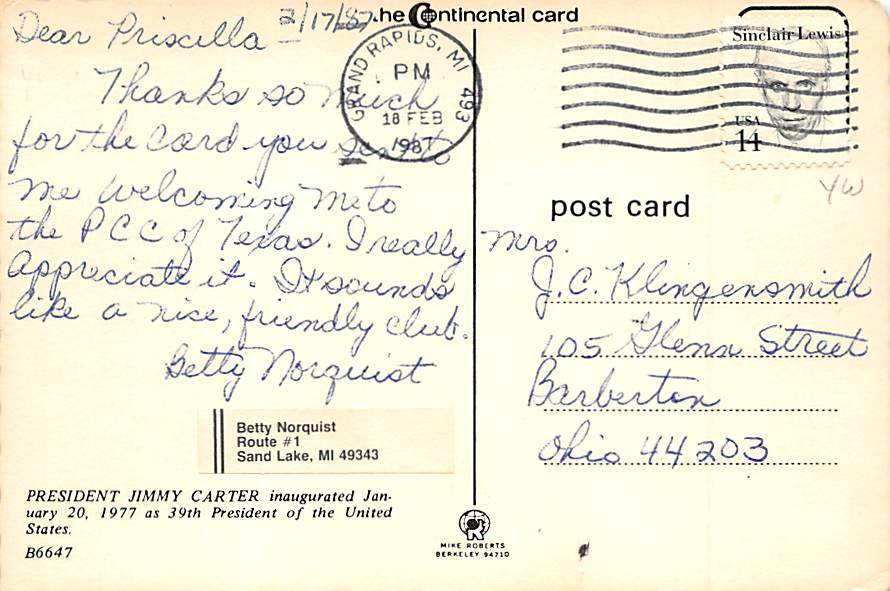 2/17/87
Dear Priscilla –
Thanks so much
for the card you sent to
me welcoming me to
the PCC of Texas. I really
appreciate it. It sounds
like a nice, friendly club.
Betty Norquist
Betty Norquist
Route #1
Sand Lake, MI 49343
PRESIDENT JIMMY CARTER inaugurated Jan-
uary 20, 1977 as 39th President of the United
States.
B6647
The Continental card
GRAND RAPIDS, MI 493
PM
18 FEB
1987
Sinclair Lewis
USA
14
YW
post card
Mrs.
J.C. Klingensmith
105 Glenn Street
Barberton
Ohio 44203
MIKE ROBERTS
BERKELEY 94710